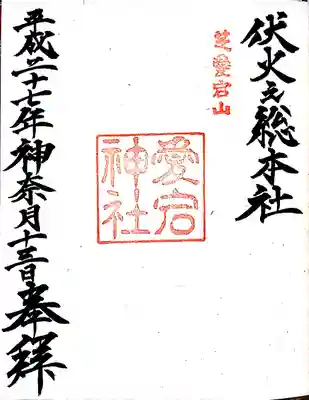 伏火之総本社
芝愛宕山
愛宕
神社
平成二十七年神奈月十三日奉拜